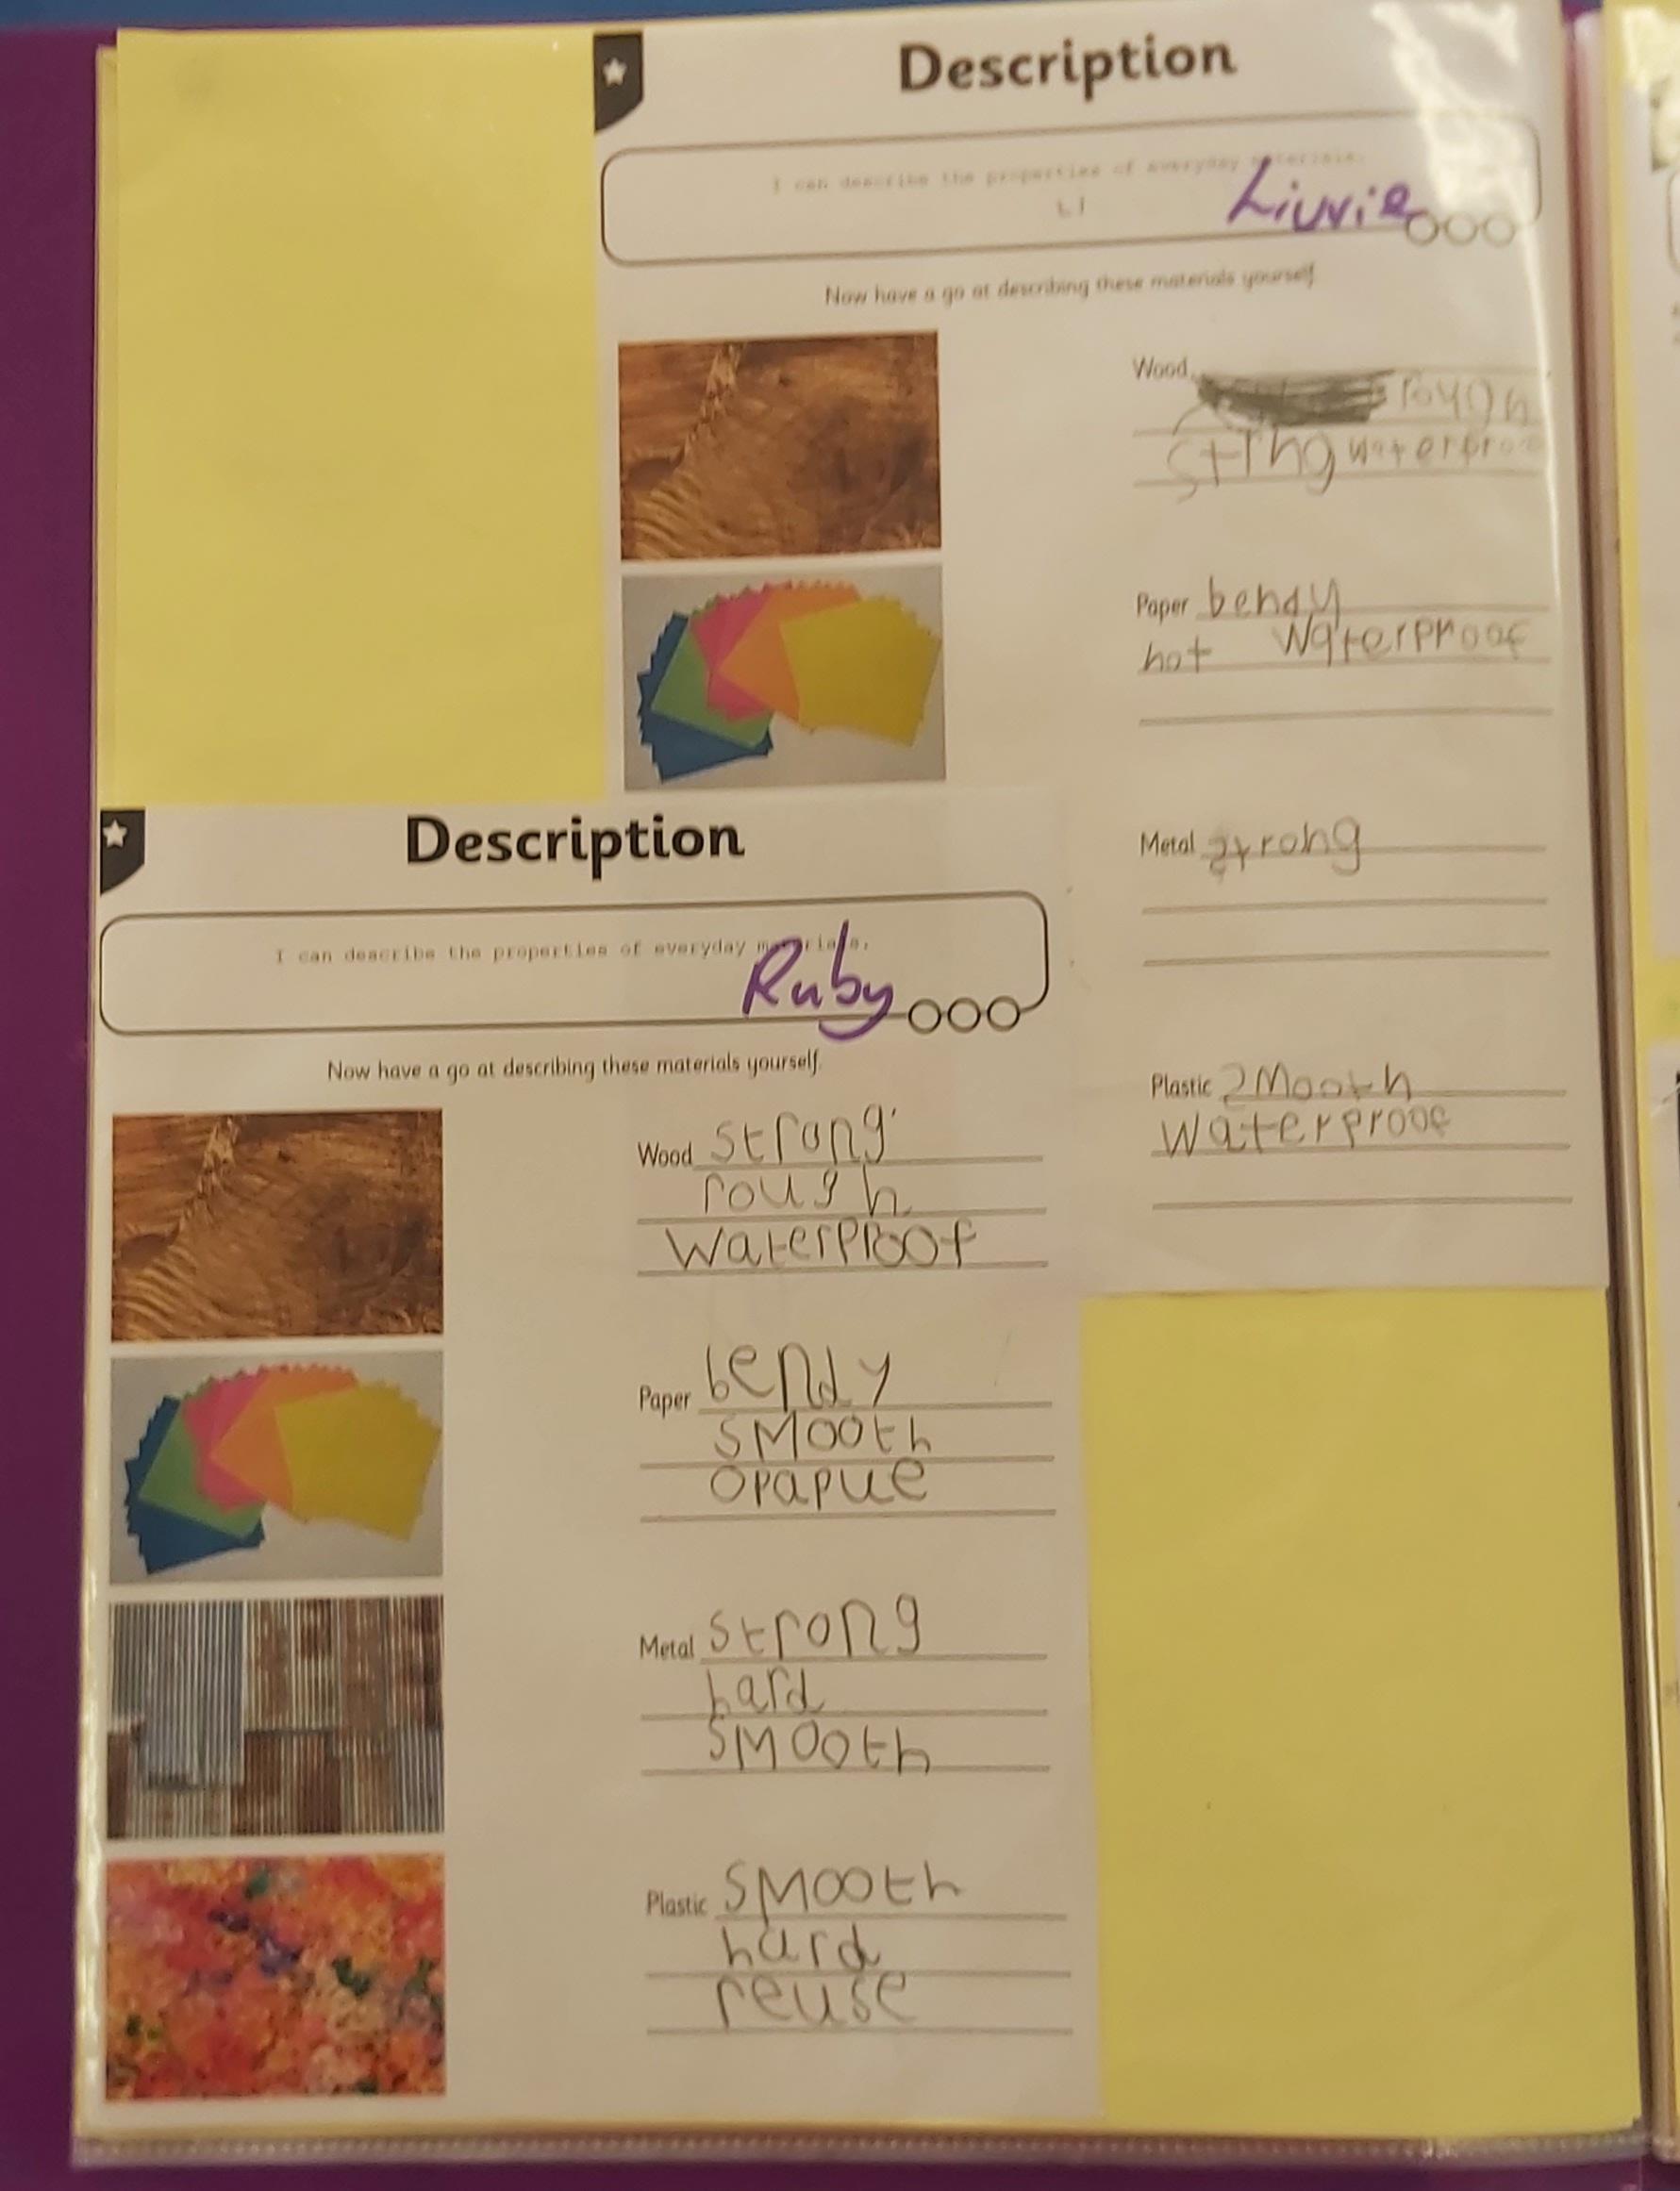 Description
I can describe the properties of everyday materials.
LI
Liuvie
Now have a go at describing these materials yourself.
Wood rough
strng waterproo
Paper bendy
not waterproof
Metal strong
Plastic smooth
waterproof
Description
I can describe the properties of everyday materials.
Ruby
Now have a go at describing these materials yourself.
Wood strong
rough
waterproof
Paper bendy
smooth
opapue
Metal strong
hard
smooth
Plastic smooth
hard
reuse